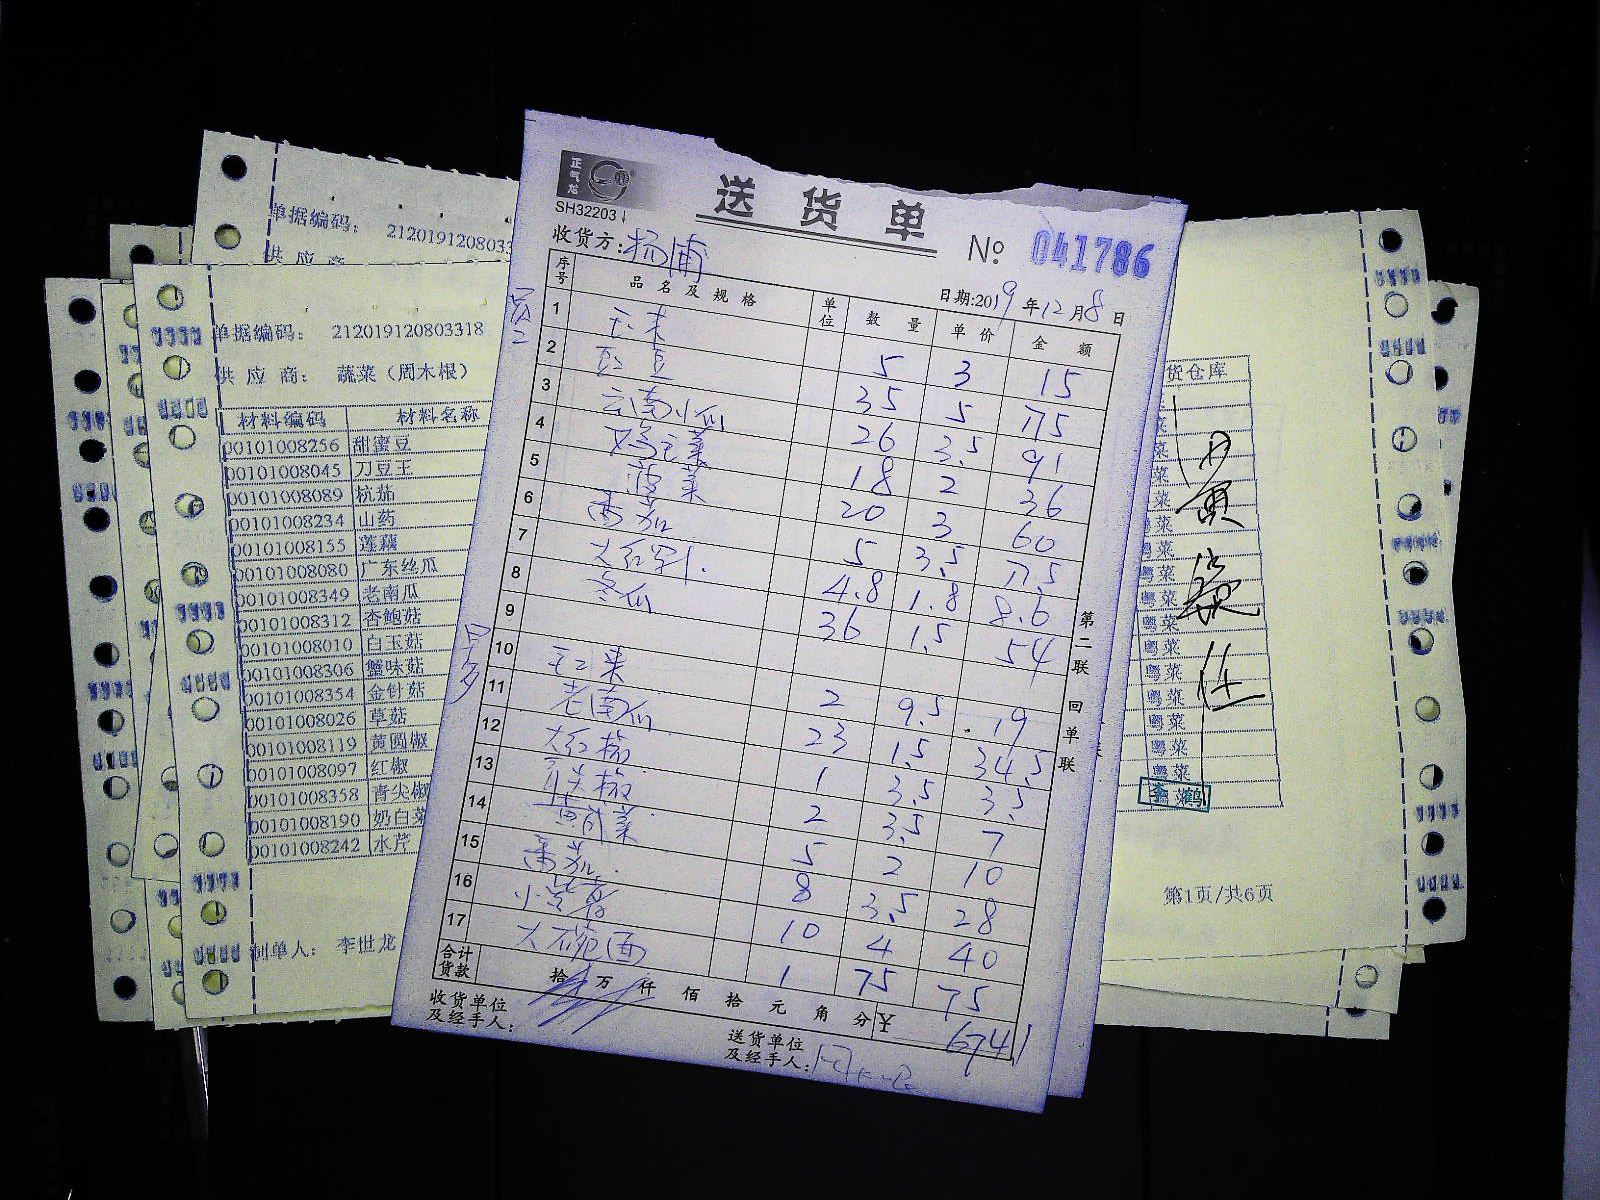 单据编码： 2120191208033
供应商
单据编码： 212019120803318
供应商： 蔬菜（周木根）
材料编码 材料名称
00101008256 甜蜜豆
00101008045 刀豆王
00101008089 杭茄
00101008234 山药
00101008155 莲藕
00101008080 广东丝瓜
00101008349 老南瓜
00101008312 杏鲍菇
00101008010 白玉菇
00101008306 蟹味菇
00101008354 金针菇
00101008026 草菇
00101008119 黄圆椒
00101008097 红椒
00101008358 青尖椒
00101008190 奶白菜
00101008242 水芹
制单人： 李世龙
正气龙
SH32203
送货单
№ 041786
收货方：杨浦
日期：2019年12月8日
序号 品名及规格 单位 数量 单价 金额
1 玉米 5 3 15
2 豇豆 35 5 175
3 云南小瓜 26 3.5 91
4 鸡毛菜 18 2 36
5 菠菜 20 3 60
6 番茄 5 3.5 17.5
7 4.8 1.8 8.6
8 冬瓜 36 1.5 54
9
10 2 9.5 19
11 老南瓜 23 1.5 34.5
12 大红椒 1 3.5 3.5
13 青尖椒 2 3.5 7
14 5 2 10
15 番茄 8 3.5 28
16 10 4 40
17 1 75 75
合计货款 拾 万 仟 佰 拾 元 角 分 ¥ 674.1
收货单位及经手人：
送货单位及经手人：
第二联 回单联
货仓库
菜
菜
菜
菜
粤菜
粤菜
粤菜
粤菜
粤菜
粤菜
粤菜
粤菜
粤菜
粤菜
李鹤
第1页/共6页